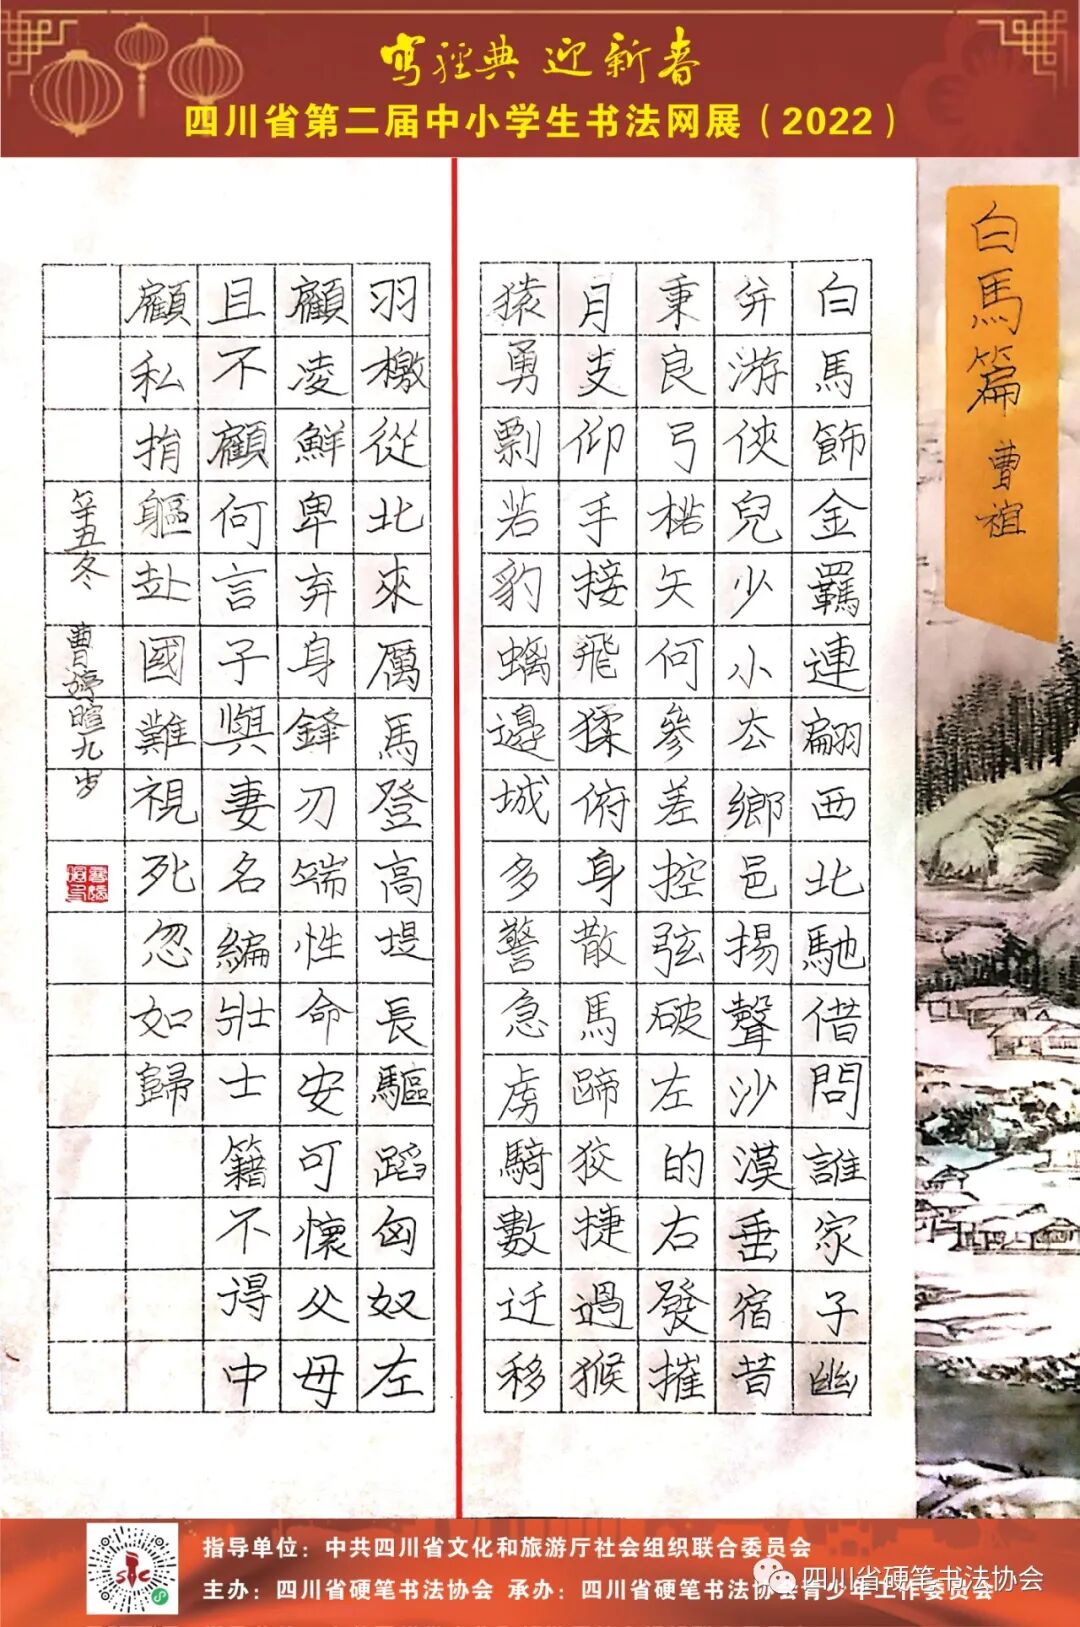 寫經典 迎新春
四川省第二届中小学生书法网展（2022）
白馬篇 曹植
白馬飾金羈連翩西北馳借問誰家子幽
并游俠兒少小去鄉邑揚聲沙漠垂宿昔
秉良弓楛矢何參差控弦破左的右發摧
月支仰手接飛猱俯身散馬蹄狡捷過猴
猿勇剽若豹螭邊城多警急虜騎數迁移
羽檄從北來厲馬登高堤長驅蹈匈奴左
顧凌鮮卑弃身鋒刃端性命安可懷父母
且不顧何言子與妻名編壯士籍不得中
顧私捐軀赴國難視死忽如歸
辛丑冬 曹婷暄九岁
指导单位：中共四川省文化和旅游厅社会组织联合委员会
主办：四川省硬笔书法协会 承办：四川省硬笔书法协会青少年工作委员会
四川省硬笔书法协会